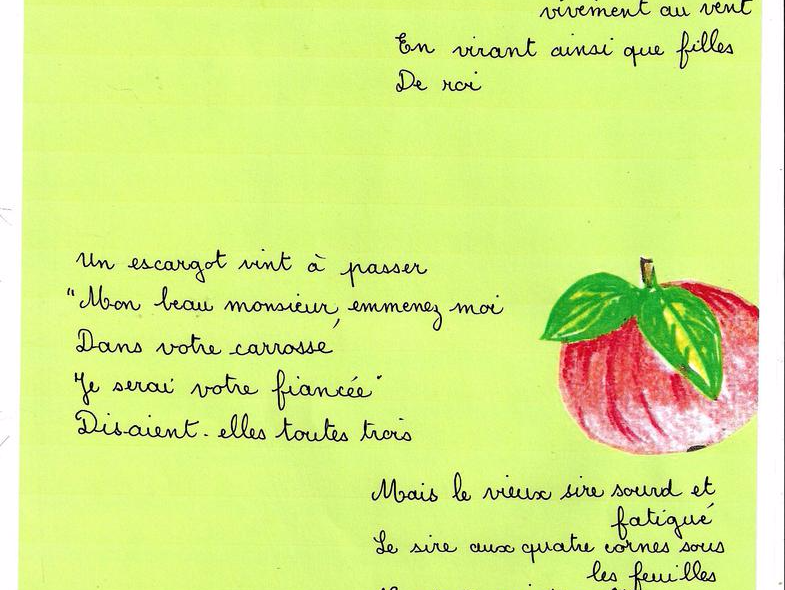 vivement au vent
En virant ainsi que filles
De roi
Un escargot vint à passer
"Mon beau monsieur, emmenez moi
Dans votre carrosse
Je serai votre fiancée"
Disaient-elles toutes trois
Mais le vieux sire sourd et
fatigué
Le sire aux quatre cornes sous
les feuilles